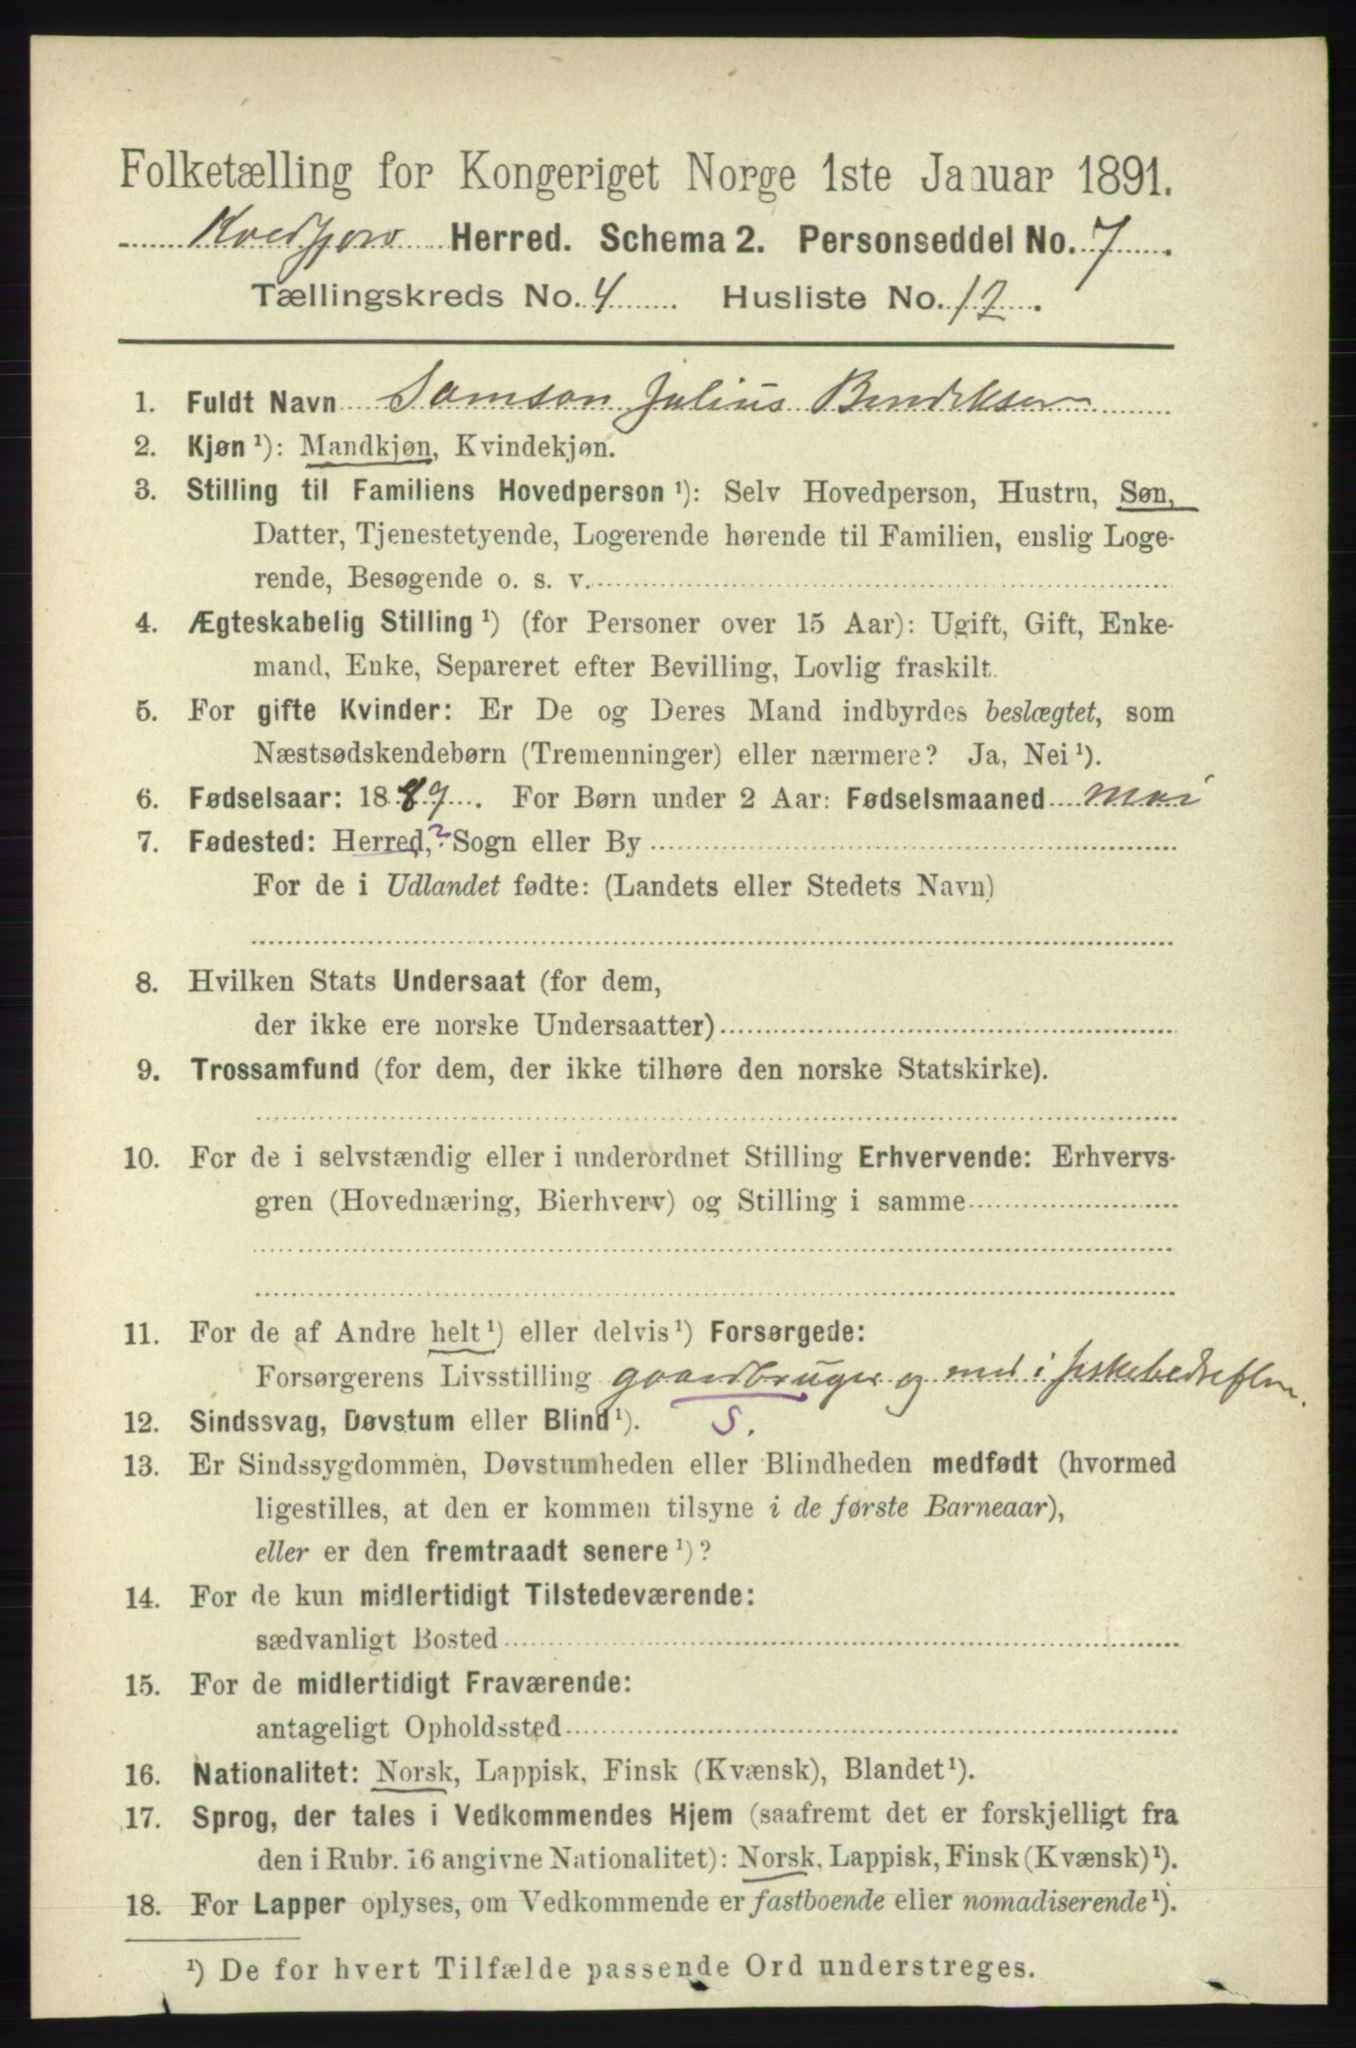 Folketælling for Kongeriget Norge 1ste Januar 1891.
Kvedfjord Herred. Schema 2. Personseddel No. 7.
Tællingskreds No. 4. Husliste No. 12.
1. Fuldt Navn Samson Julius Bendiksen
2. Kjøn ¹): Mandkjøn, Kvindekjøn.
3. Stilling til Familiens Hovedperson ¹): Selv Hovedperson, Hustru, Søn,
Datter, Tjenestetyende, Logerende hørende til Familien, enslig Loge-
rende, Besøgende o. s. v.
4. Ægteskabelig Stilling ¹) (for Personer over 15 Aar): Ugift, Gift, Enke-
mand, Enke, Separeret efter Bevilling, Lovlig fraskilt.
5. For gifte Kvinder: Er De og Deres Mand indbyrdes beslægtet, som
Næstsødskendebørn (Tremenninger) eller nærmere? Ja, Nei ¹).
6. Fødselsaar: 1889. For Børn under 2 Aar: Fødselsmaaned mai
7. Fødested: Herred,? Sogn eller By
For de i Udlandet fødte: (Landets eller Stedets Navn)
8. Hvilken Stats Undersaat (for dem,
der ikke ere norske Undersaatter)
9. Trossamfund (for dem, der ikke tilhøre den norske Statskirke).
10. For de i selvstændig eller i underordnet Stilling Erhvervende: Erhvervs-
gren (Hovednæring, Bierhverv) og Stilling i samme
11. For de af Andre helt ¹) eller delvis ¹) Forsørgede:
Forsørgerens Livsstilling gaardbruger og med i fiskebedriften.
12. Sindssvag, Døvstum eller Blind ¹). S.
13. Er Sindssygdommen, Døvstumheden eller Blindheden medfødt (hvormed
ligestilles, at den er kommen tilsyne i de første Barneaar),
eller er den fremtraadt senere ¹)?
14. For de kun midlertidigt Tilstedeværende:
sædvanligt Bosted
15. For de midlertidigt Fraværende:
antageligt Opholdssted
16. Nationalitet: Norsk, Lappisk, Finsk (Kvænsk), Blandet ¹).
17. Sprog, der tales i Vedkommendes Hjem (saafremt det er forskjelligt fra
den i Rubr. 16 angivne Nationalitet): Norsk, Lappisk, Finsk (Kvænsk) ¹).
18. For Lapper oplyses, om Vedkommende er fastboende eller nomadiserende ¹).
¹) De for hvert Tilfælde passende Ord understreges.